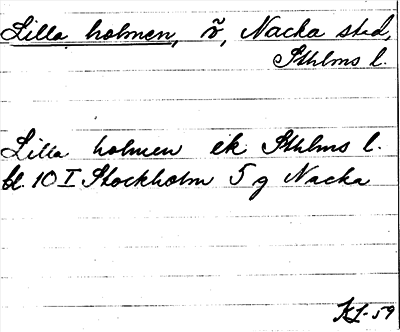 Lilla holmen, ṽ, Nacka stad,
Sthlms l.
Lilla holmen ek Sthlms l.
bl. 10 I Stockholm 5 g Nacka
KL-59